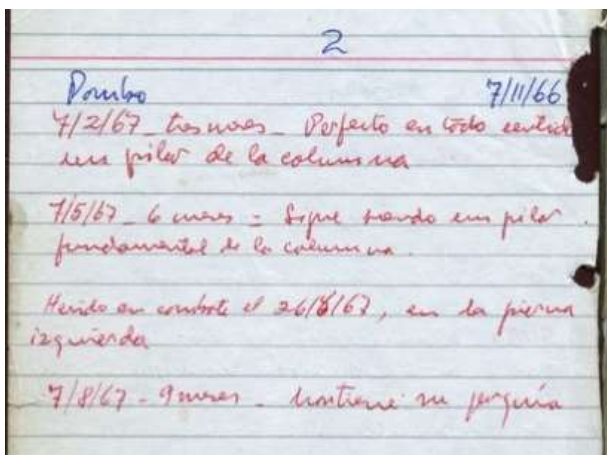 2
Pombo 7/11/66
7/2/67 _ tres meses _ Perfecto en todo sentido
un pilar de la columna
7/5/67 _ 6 meses = Sigue siendo un pilar
fundamental de la columna.
Herido en combate el 26/6/67, en la pierna
izquierda
7/8/67 - 9 meses - Mantiene su